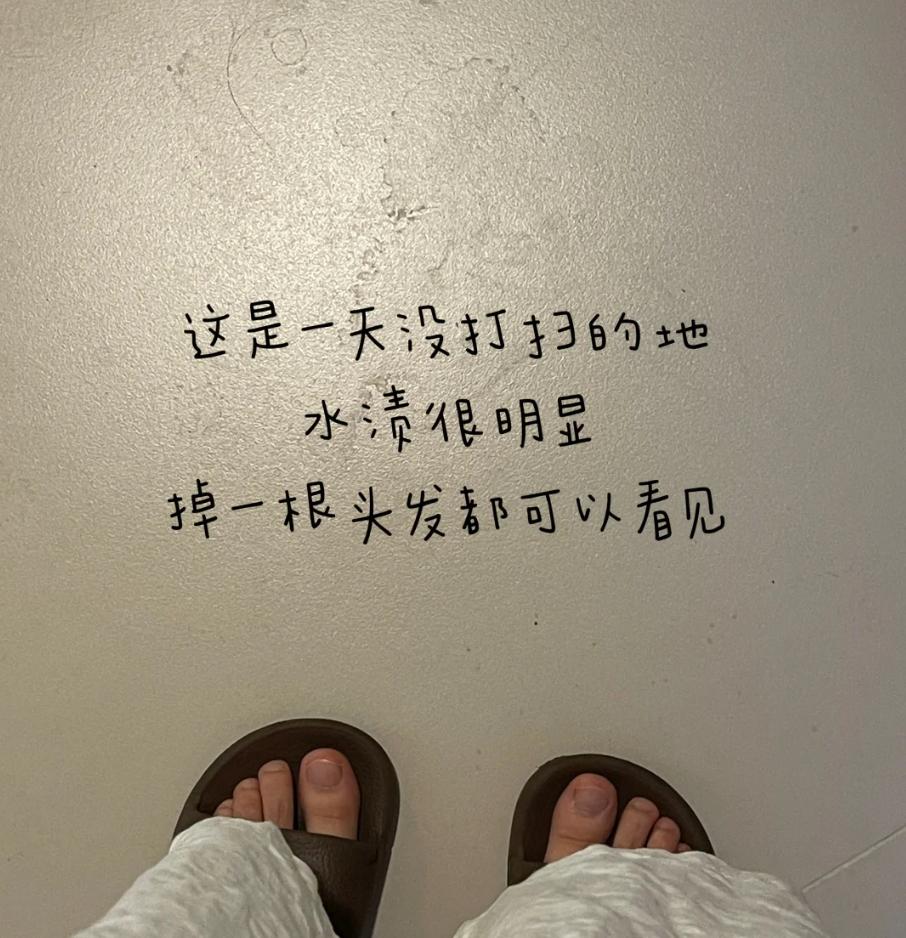 这是一天没打扫的地
水渍很明显
掉一根头发都可以看见